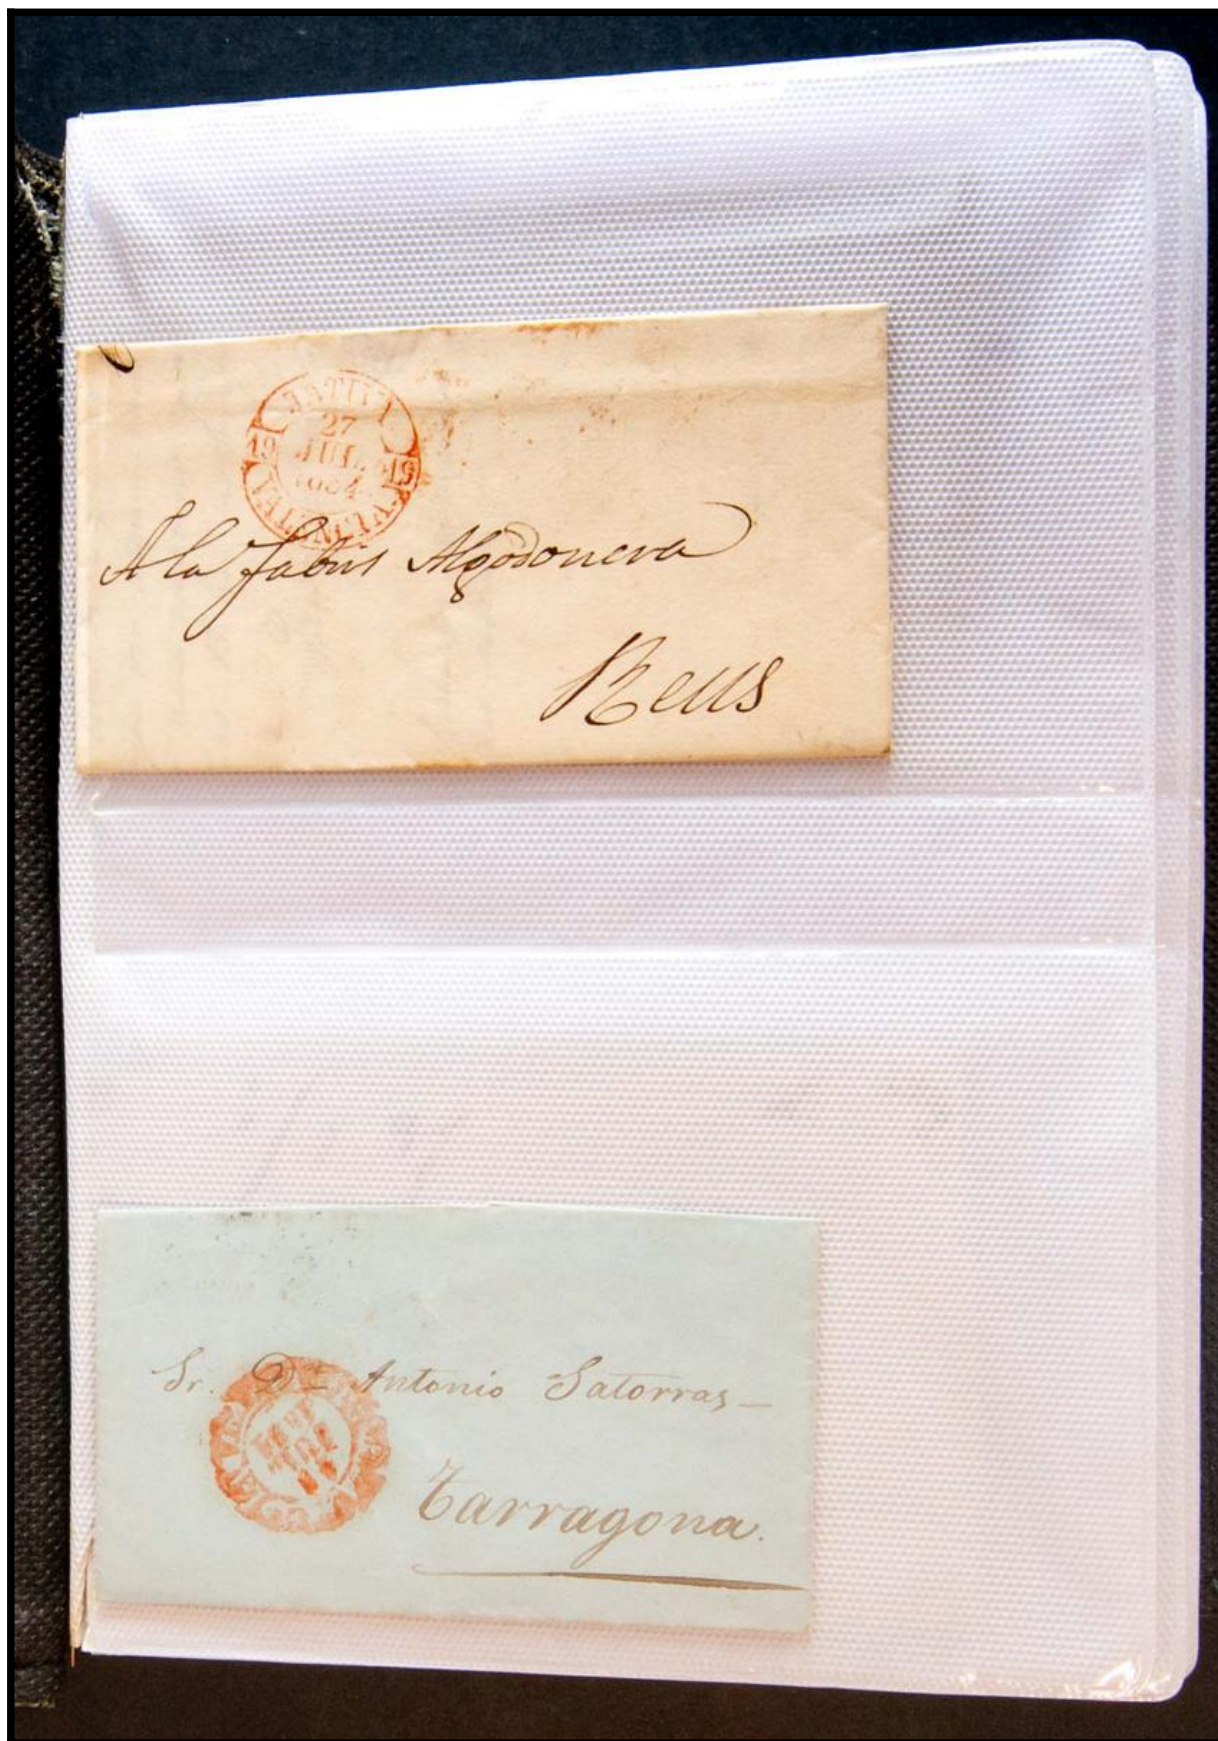 JATIVA
27
JUL.
1854
19
19
VALENCIA
A la fabril Algodonera
Reus
Sr. Dn Antonio Satorras
Tarragona.